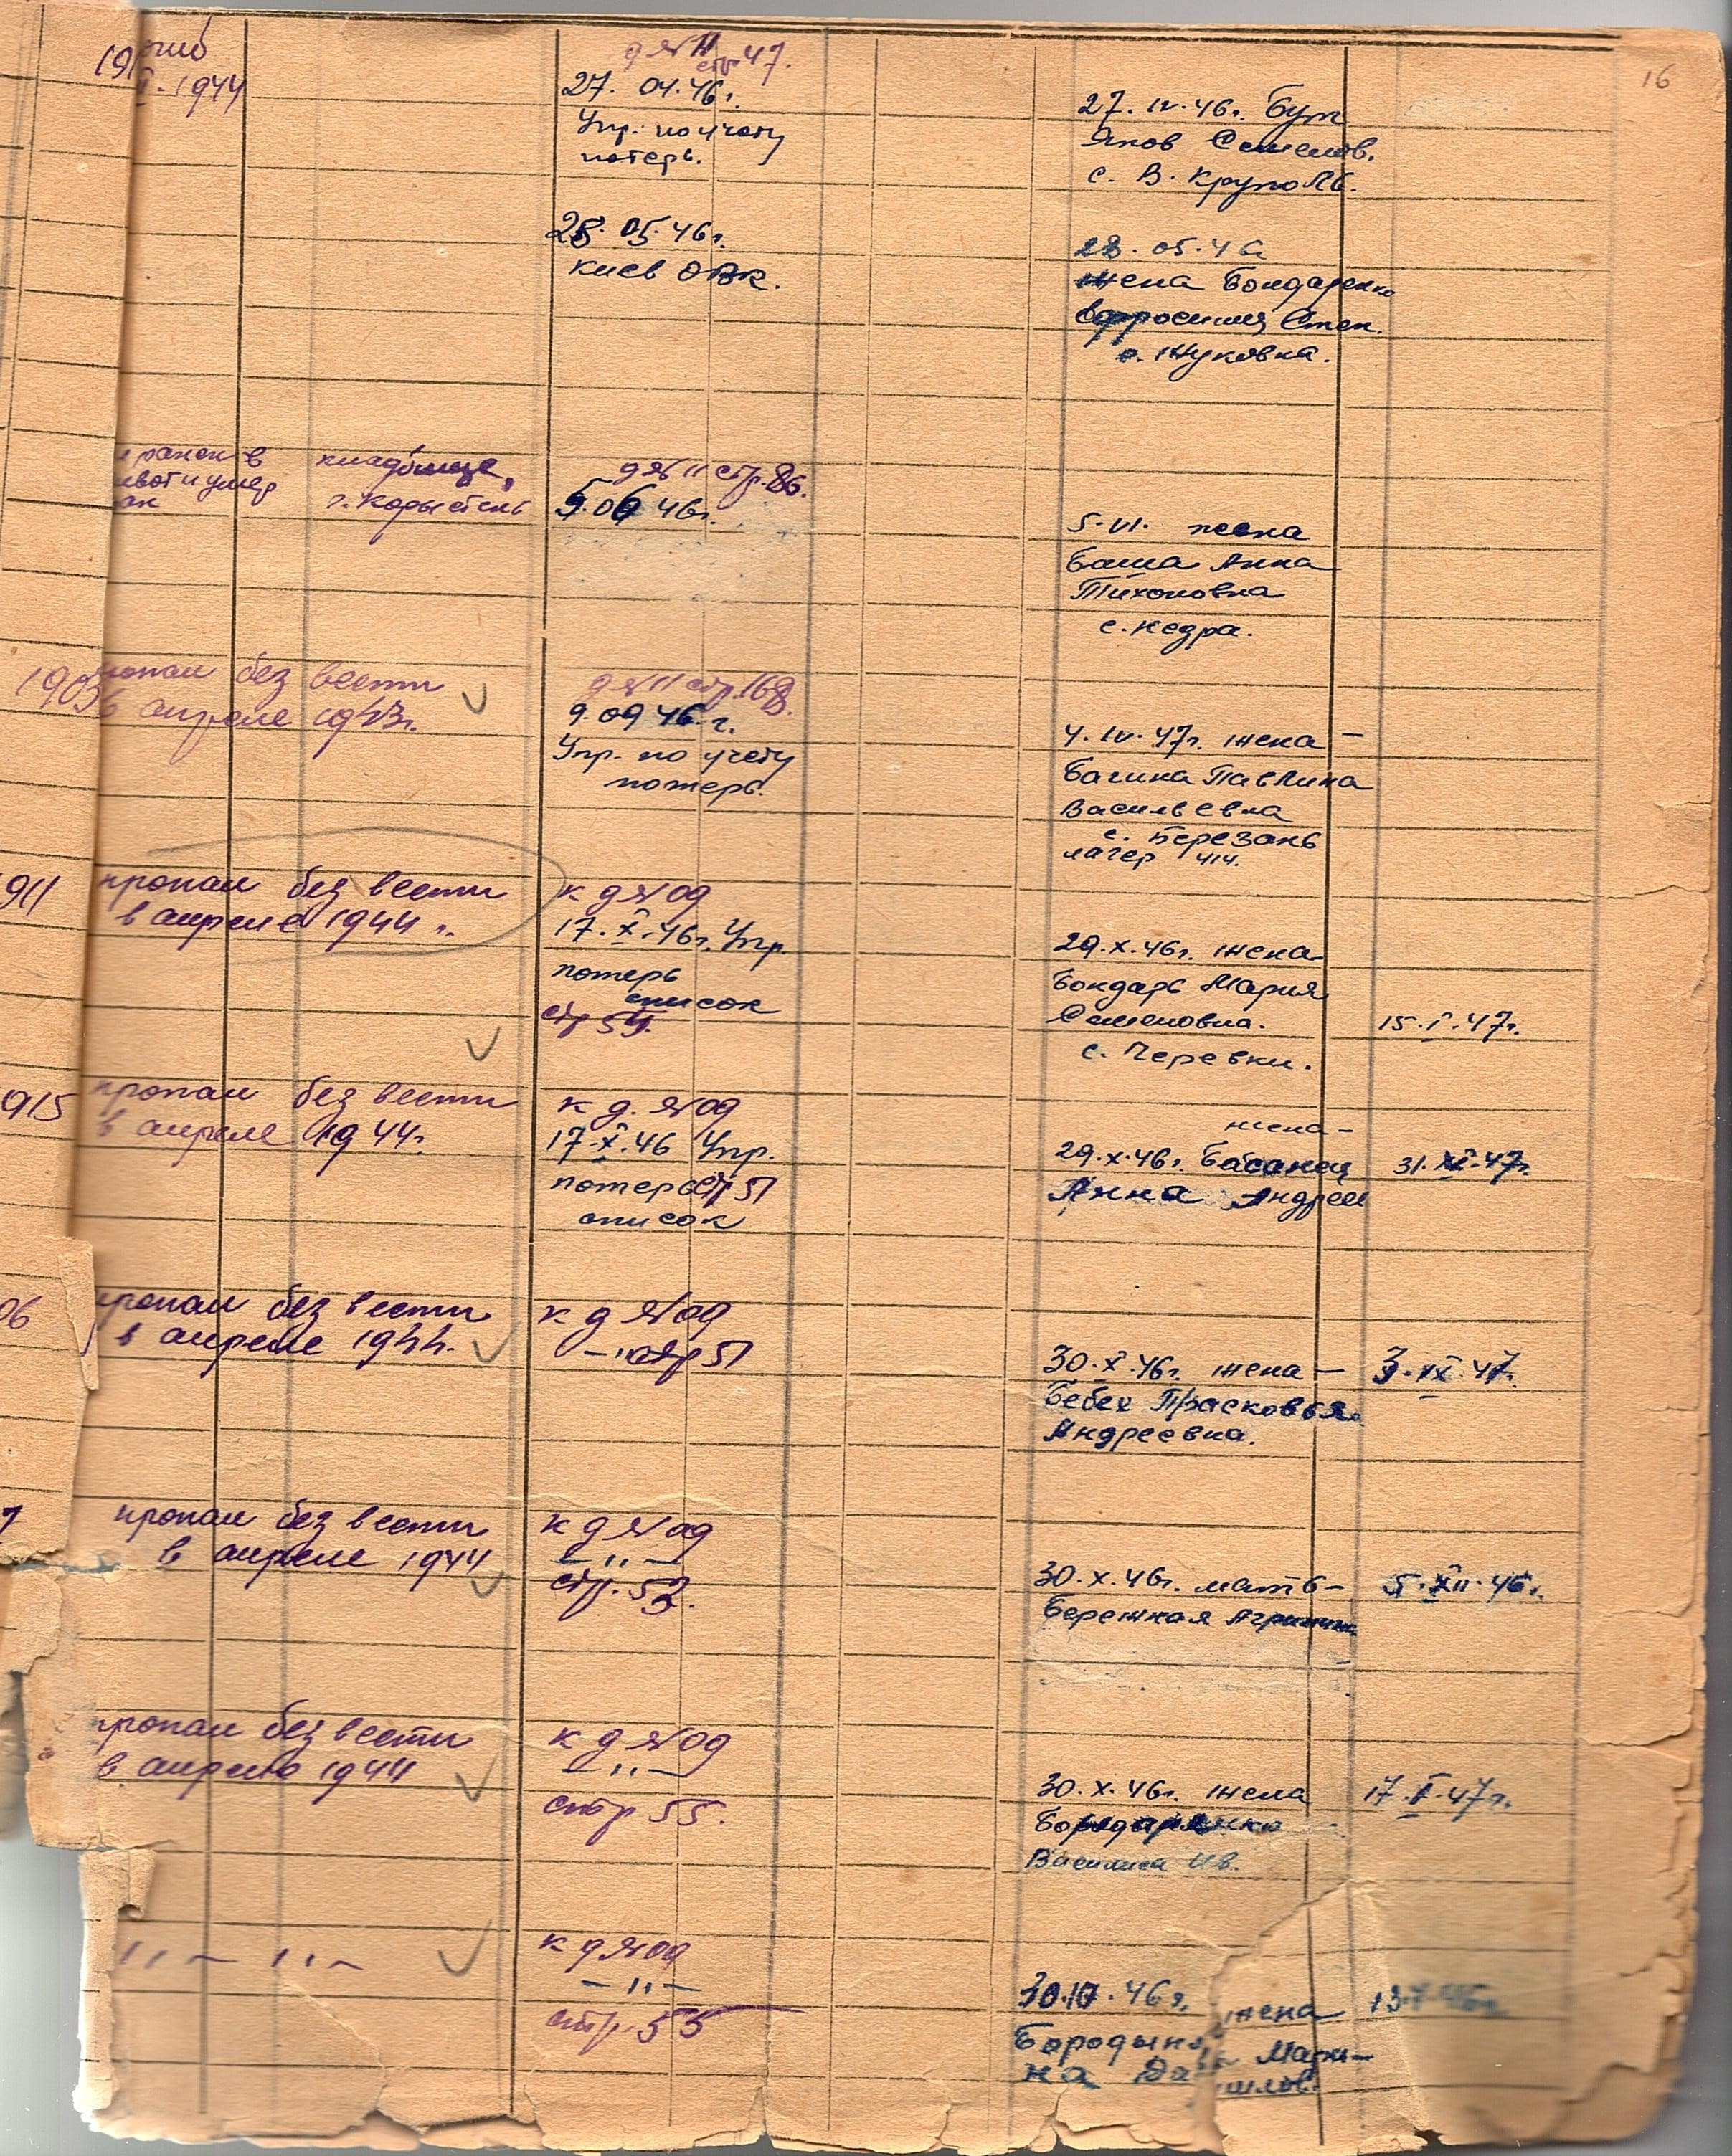 16
1944
д №11 стр 47.
27. 04. 46 г.
Упр. по учету
потерь.
27. IV. 46 г. Бут
Яков Семенов.
с. В. Круполь.
28. 05. 46 г.
Киев ОВК.
28. 05. 46
жена Бондаренко
Ефросиния Степ.
с. Жуковка.
ранен в
живот и умер
кладбище,
г. Коростень
д №11 стр. 86.
5. 06 46 г.
5. VI. жена
Баша Анна
Тихоновна
с. Недра.
1903
пропал без вести
в апреле 1943 г.
д №11 стр. 168.
9. 09 46 г.
Упр. по учету
потерь.
4. IV. 47 г. жена –
Багина Павлина
Васильевна
с. Березань
лагер 414.
911
пропал без вести
в апреле 1944 г.
к д №09
17. X. 46 г. Упр.
потерь
список
стр 54.
29. X. 46 г. жена
Бондарь Мария
Семеновна.
с. Черевки.
15. I. 47 г.
915
пропал без вести
в апреле 1944 г.
к д. №09
17. X. 46 Упр.
потерь стр 51
список
жена –
29. X. 46 г. Басанец
Анна Андреев
31. XII. 47 г.
06
пропал без вести
в апреле 1944.
к д №09
– " – стр 51
30. X. 46 г. жена –
Бебех Прасковья
Андреевна.
3. IX. 47.
7
пропал без вести
в апреле 1944
к д №09
– " –
стр. 53.
30. X. 46 г. мать –
Бережная
5. XII. 46 г.
пропал без вести
в апреле 1944
к д №09
– " –
стр 55.
30. X. 46 г. жена
Василиса Ив.
17. I. 47 г.
" – " –
к д №09
– " –
стр. 55
30. 10. 46 г. жена